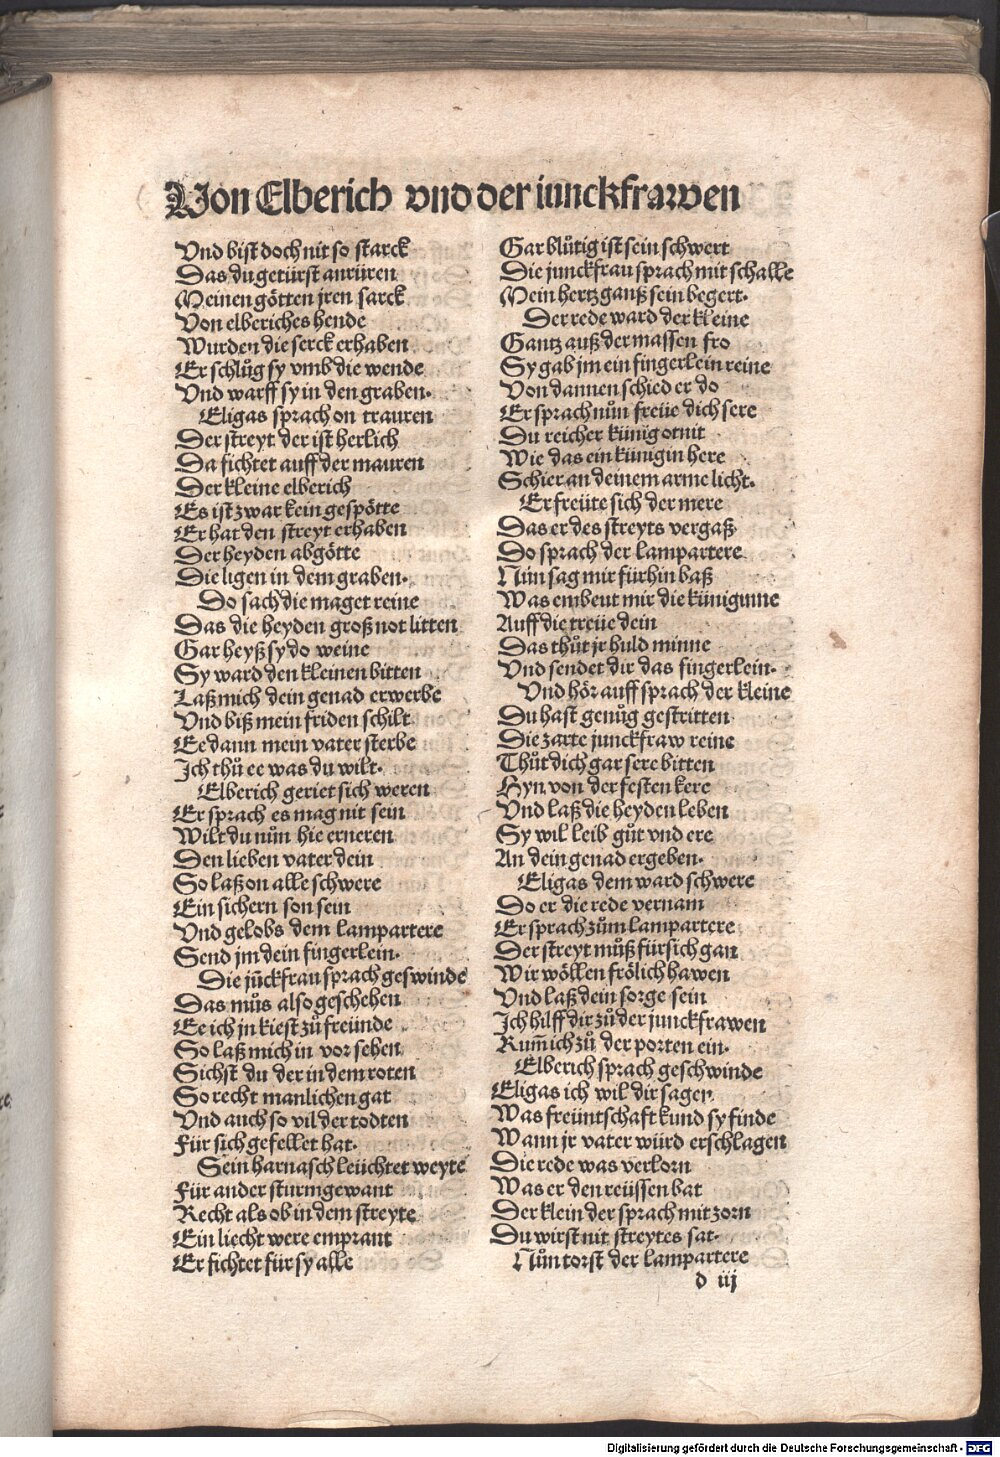 Von Elberich vnd der iunckfrawen
Vnd bist doch nit so starck
Das du getürst anrüren
Meinen götten jren sarck
Von elberiches hende
Wurden die serck erhaben
Er schlůg sy vmb die wende
Vnd warff sy in den graben.
Eligas sprach on trauren
Der streyt der ist herlich
Da fichtet auff der mauren
Der kleine elberich
Es ist zwar kein gespötte
Er hat den streyt erhaben
Der heyden abgötte
Die ligen in dem graben.
Do sach die maget reine
Das die heyden groß not litten
Gar heyß sy do weine
Sy ward den kleinen bitten
Laß mich dein genad erwerbe
Vnd biß mein friden schilt
Ee dann mein vater sterbe
Ich thů ee was du wilt.
Elberich geriet sich weren
Er sprach es mag nit sein
Wilt du nůn hie erneren
Den lieben vater dein
So laß on alle schwere
Ein sichern son sein
Vnd gelobs dem lampartere
Send jm dein fingerlein.
Die jūckfrau sprach geswinde
Das můs also geschehen
Ee ich jn kiest zů freünde
So laß mich in vor sehen
Sichst du der in dem roten
So recht manlichen gat
Vnd auch so vil der todten
Für sich gefellet hat.
Sein harnasch leüchtet weyte
Für ander sturmgewant
Recht als ob in dem streyte
Ein liecht were emprant
Er fichtet für sy alle
Gar blůtig ist sein schwert
Die junckfrau sprach mit schalle
Mein hertz ganß sein begert.
Der rede ward der kleine
Gantz auß der massen fro
Sy gab jm ein fingerlein reine
Von dannen schied er do
Er sprach nůn freüe dich sere
Du reicher künig otnit
Wie das ein künigin here
Schier an deinem arme licht.
Er freüte sich der mere
Das er des streyts vergaß
Do sprach der lampartere
Nůn sag mir fürhin baß
Was embeut mir die küniginne
Auff die treüe dein
Das thůt jr huld minne
Vnd sendet dir das fingerlein.
Vnd hör auff sprach der kleine
Du hast genůg gestritten
Die zarte junckfraw reine
Thůt dich gar sere bitten
Hyn von der festen kere
Vnd laß die heyden leben
Sy wil leib gůt vnd ere
An dein genad ergeben.
Eligas dem ward schwere
Do er die rede vernam
Er sprach zům lampartere
Der streyt můß fürsich gan
Wir wöllen frölich hawen
Vnd laß dein sorge sein
Ich hilff dir zů der junckfrawen
Kum̄ ich zů der porten ein.
Elberich sprach geschwinde
Eligas ich wil dir sagen
Was freüntschafft kund sy finde
Wann jr vater würd erschlagen
Die rede was verlorn
Was er den reüssen bat
Der klein der sprach mit zorn
Du wirst nit streytes sat.
Nůn torst der lampartere
d iij
Digitalisierung gefördert durch die Deutsche Forschungsgemeinschaft - DFG